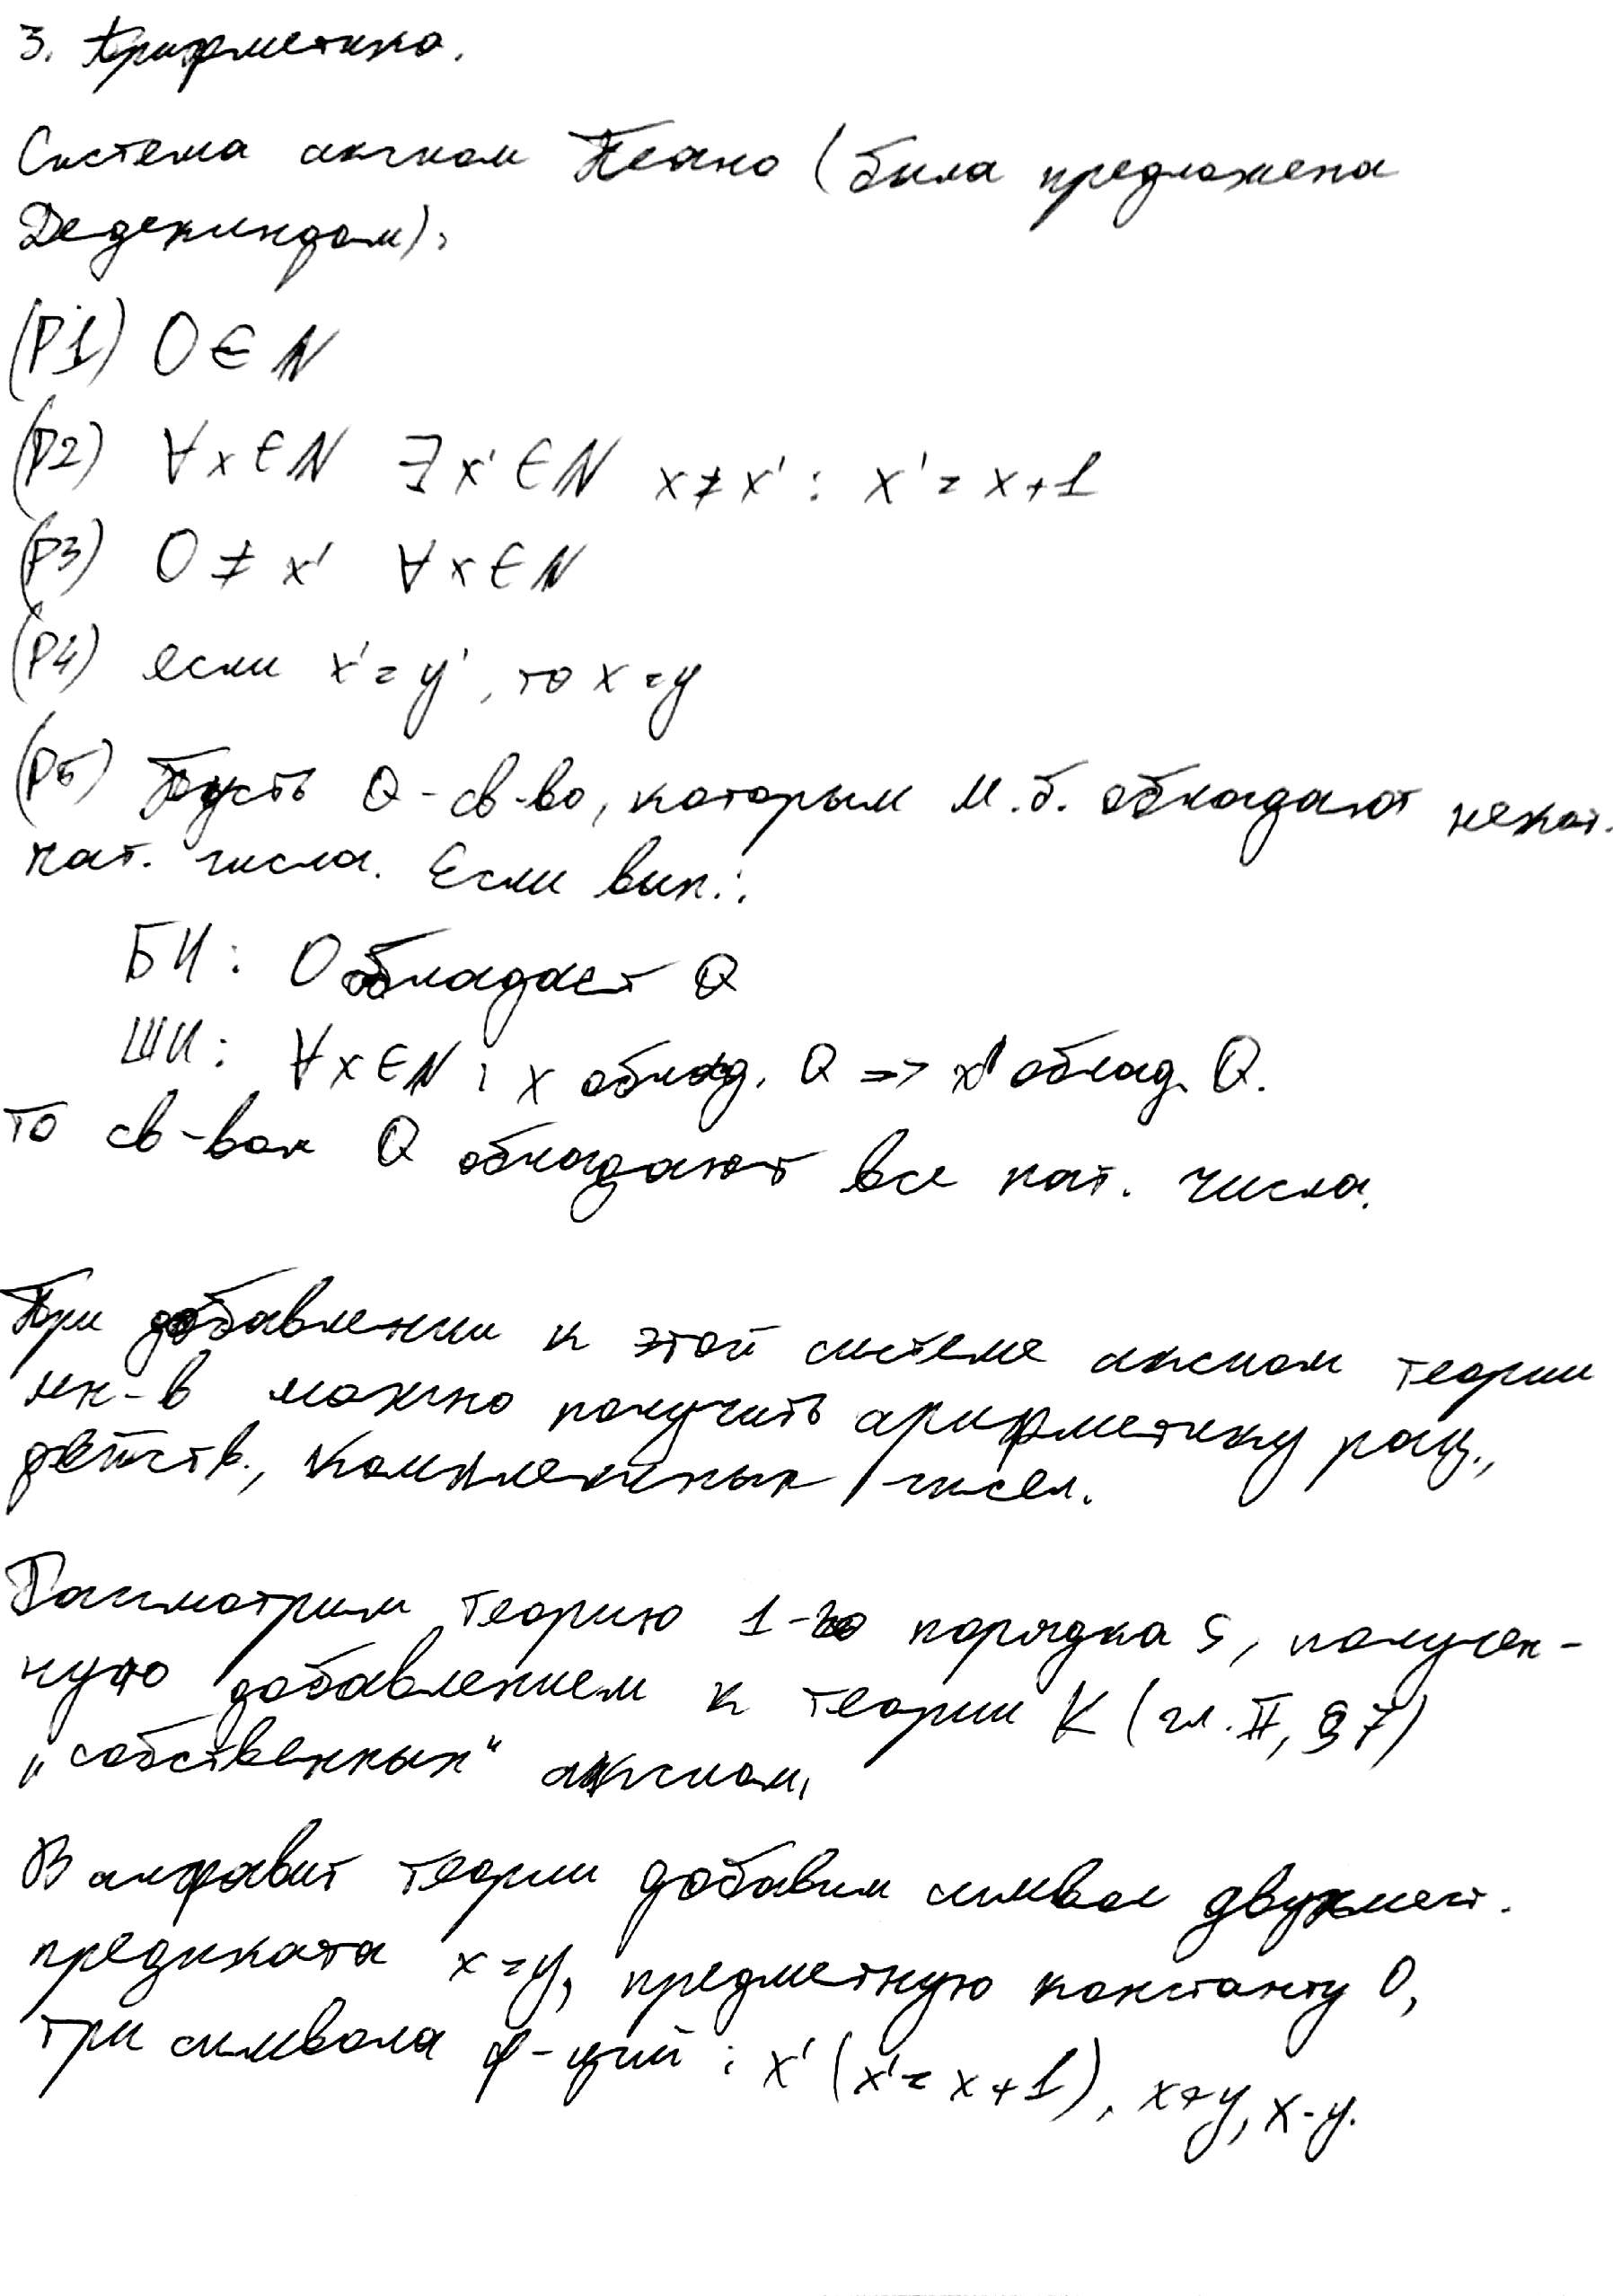 3. Арифметика.
Система аксиом Пеано (была предложена
Дедекиндом):
(P1) 0 ∈ N
(P2) ∀x∈N ∃x'∈N x≠x' : x' = x+1
(P3) 0 ≠ x' ∀x∈N
(P4) если x' = y', то x = y
(P5) Пусть Q - св-во, которым м.б. обладают некот.
нат. числа. Если вып.:
БИ: 0 обладает Q
ШИ: ∀x∈N : x облад. Q => x' облад. Q.
то св-вом Q обладают все нат. числа.
При добавлении к этой системе аксиом теории
мн-в можно получить арифметику рац.,
действ., комплексных чисел.
Рассмотрим теорию 1-го порядка S, получен-
ную добавлением к теории K (гл. II, §7)
„собственных“ аксиом.
В алфавит теории добавим символ двухмест.
предиката x=y, предметную константу 0,
три символа ф-ций : x' (x' = x+1), x+y, x·y.